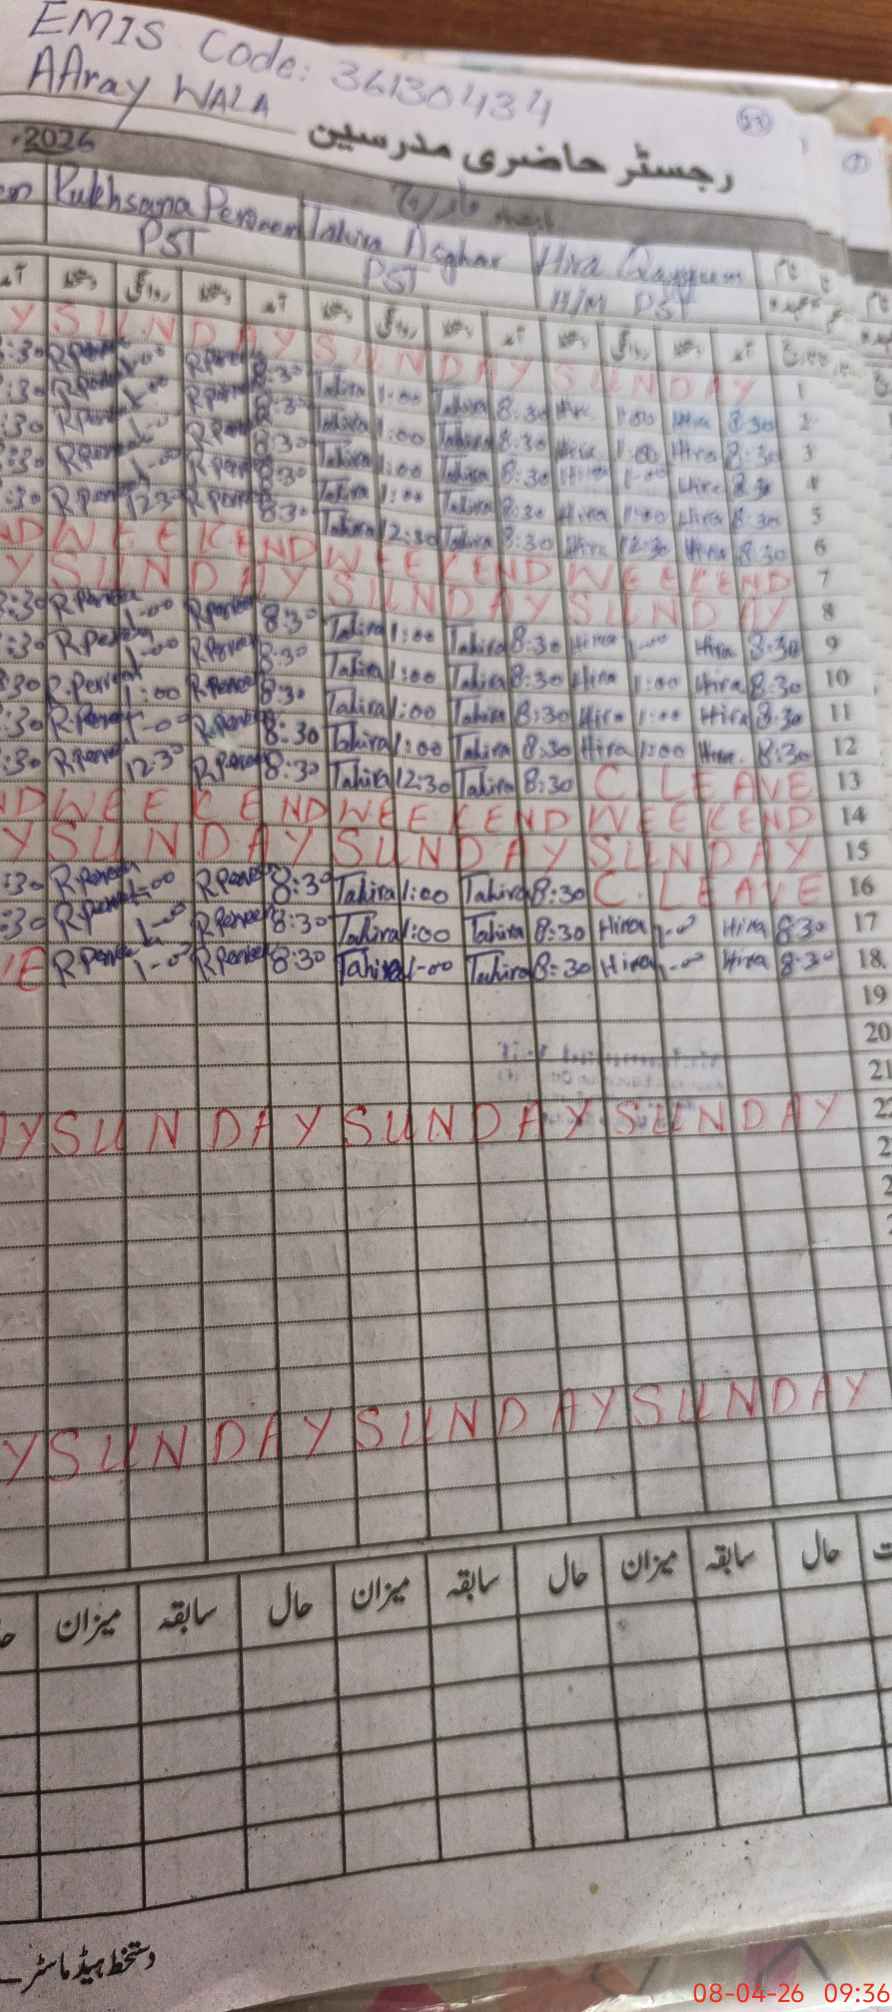 EMIS Code: 36130434
AAray WALA
رجسٹر حاضری مدرسین
2026
Rukhsana Perveen Tahira Asghar Hira Qayyum
PST PST H/M PST
آمد دستخط روانگی دستخط آمد دستخط روانگی دستخط آمد دستخط روانگی دستخط آمد
Y SUNDAY SUNDAY SUNDAY 1
:30 R Perveen 1-00 R Perveen 8:30 Tahira 1-00 Tahira 8:30 Hira 1:00 Hira 8:30 2
:30 R Perveen 1-00 R Perveen 8:30 Tahira 1:00 Tahira 8:30 Hira 1:00 Hira 8:30 3
:30 R Perveen 1-00 R Perveen 8:30 Tahira 1:00 Tahira 8:30 Hira 1-00 Hira 8:30 4
:30 R Perveen 1-00 R Perveen 8:30 Tahira 1:00 Tahira 8:30 Hira 1:00 Hira 8:30 5
:30 R Perveen 12:30 R Perveen 8:30 Tahira 12:30 Tahira 8:30 Hira 12:30 Hira 8:30 6
ND WEEKEND WEEKEND WEEKEND 7
Y SUNDAY SUNDAY SUNDAY 8
8:30 R Perveen 1-00 R Perveen 8:30 Tahira 1:00 Tahira 8:30 Hira 1-00 Hira 8:30 9
:30 R Perveen 1-00 R Perveen 8:30 Tahira 1:00 Tahira 8:30 Hira 1:00 Hira 8:30 10
:30 R Perveen 1:00 R Perveen 8:30 Tahira 1:00 Tahira 8:30 Hira 1:00 Hira 8:30 11
:30 R Perveen 1-00 R Perveen 8:30 Tahira 1:00 Tahira 8:30 Hira 1:00 Hira 8:30 12
:30 R Perveen 12:30 R Perveen 8:30 Tahira 12:30 Tahira 8:30 C. LEAVE 13
ND WEEKEND WEEKEND WEEKEND 14
Y SUNDAY SUNDAY SUNDAY 15
:30 R Perveen 1-00 R Perveen 8:30 Tahira 1:00 Tahira 8:30 C. LEAVE 16
:30 R Perveen 1-00 R Perveen 8:30 Tahira 1:00 Tahira 8:30 Hira 1-00 Hira 8:30 17
VE R Perveen 1-00 R Perveen 8:30 Tahira 1-00 Tahira 8:30 Hira 1-00 Hira 8:30 18
19
20
21
Y SUNDAY SUNDAY SUNDAY 22
Y SUNDAY SUNDAY SUNDAY
حال سابقہ میزان حال سابقہ میزان حال سابقہ میزان
دستخط ہیڈ ماسٹر
08-04-26 09:36